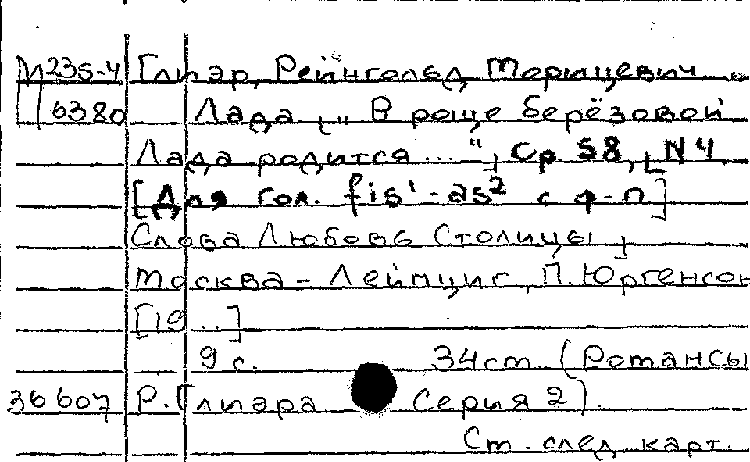 М235-4 Глиэр, Рейнгольд Морицевич
6380 Лада „ В роще берёзовой
Лада родится ... ", Ор 58, N4
[Для гол. fis¹-as² с ф-п]
Слова Любовь Столицы,
Москва - Лейпциг, П. Юргенсон
[19..]
9 с. 34cm (Романсы
36607 Р. Глиэра Серия 2).
См. след карт.